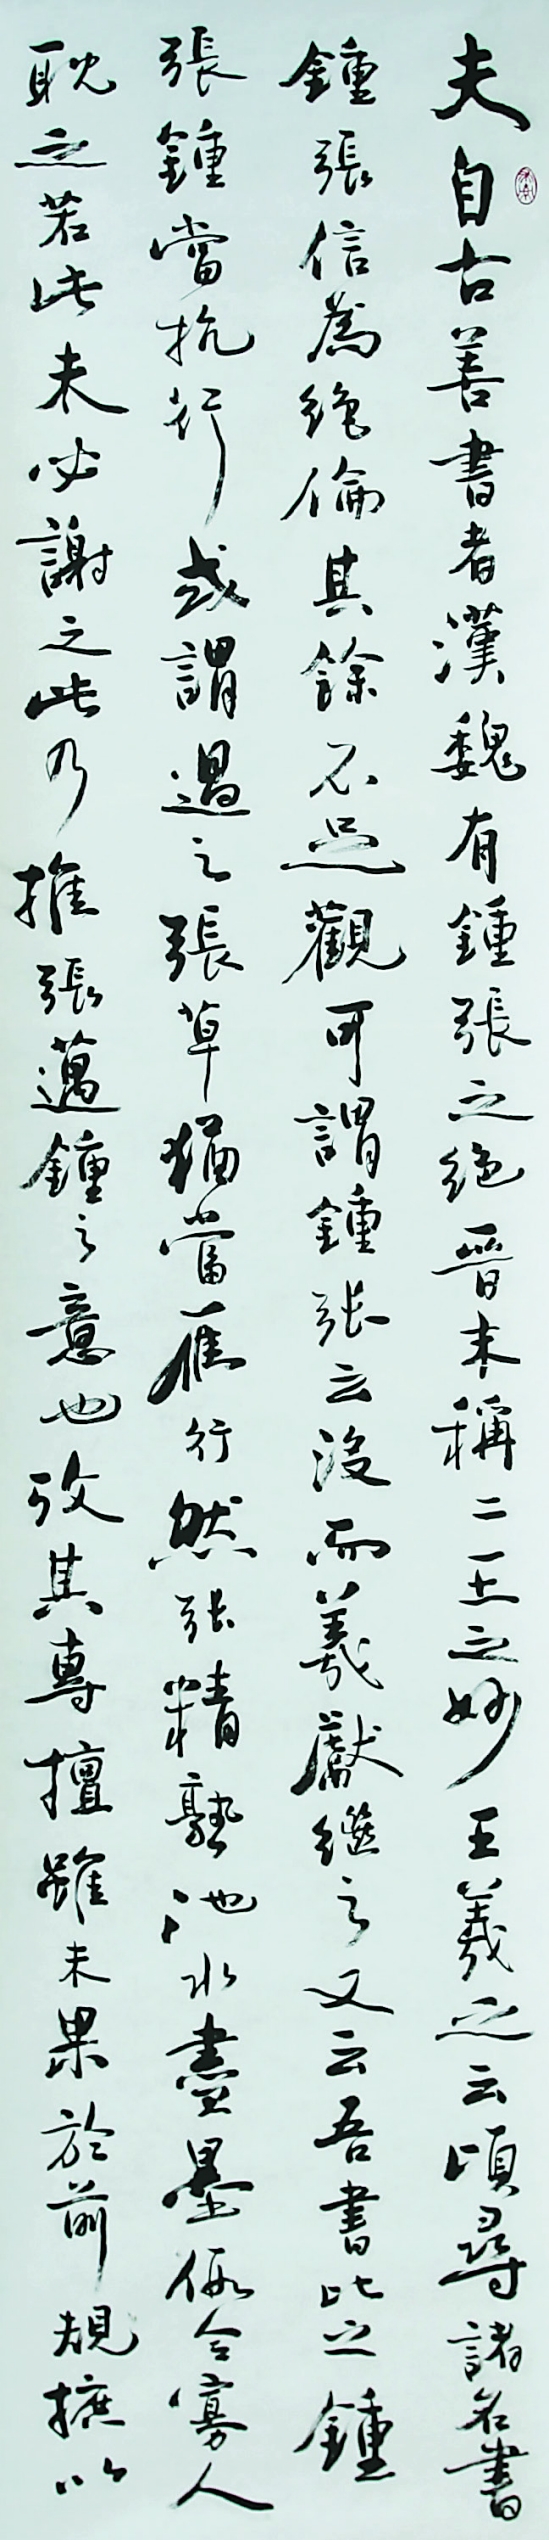 夫自古善書者漢魏有鍾張之絕晉末稱二王之妙王羲之云頃尋諸名書
鍾張信為絕倫其餘不足觀可謂鍾張云沒而羲獻繼之又云吾書比之鍾
張鍾當抗行或謂過之張草猶當雁行然張精熟池水盡墨假令寡人
耽之若此未必謝之此乃推張邁鍾之意也攷其專擅雖未果於前規摭以